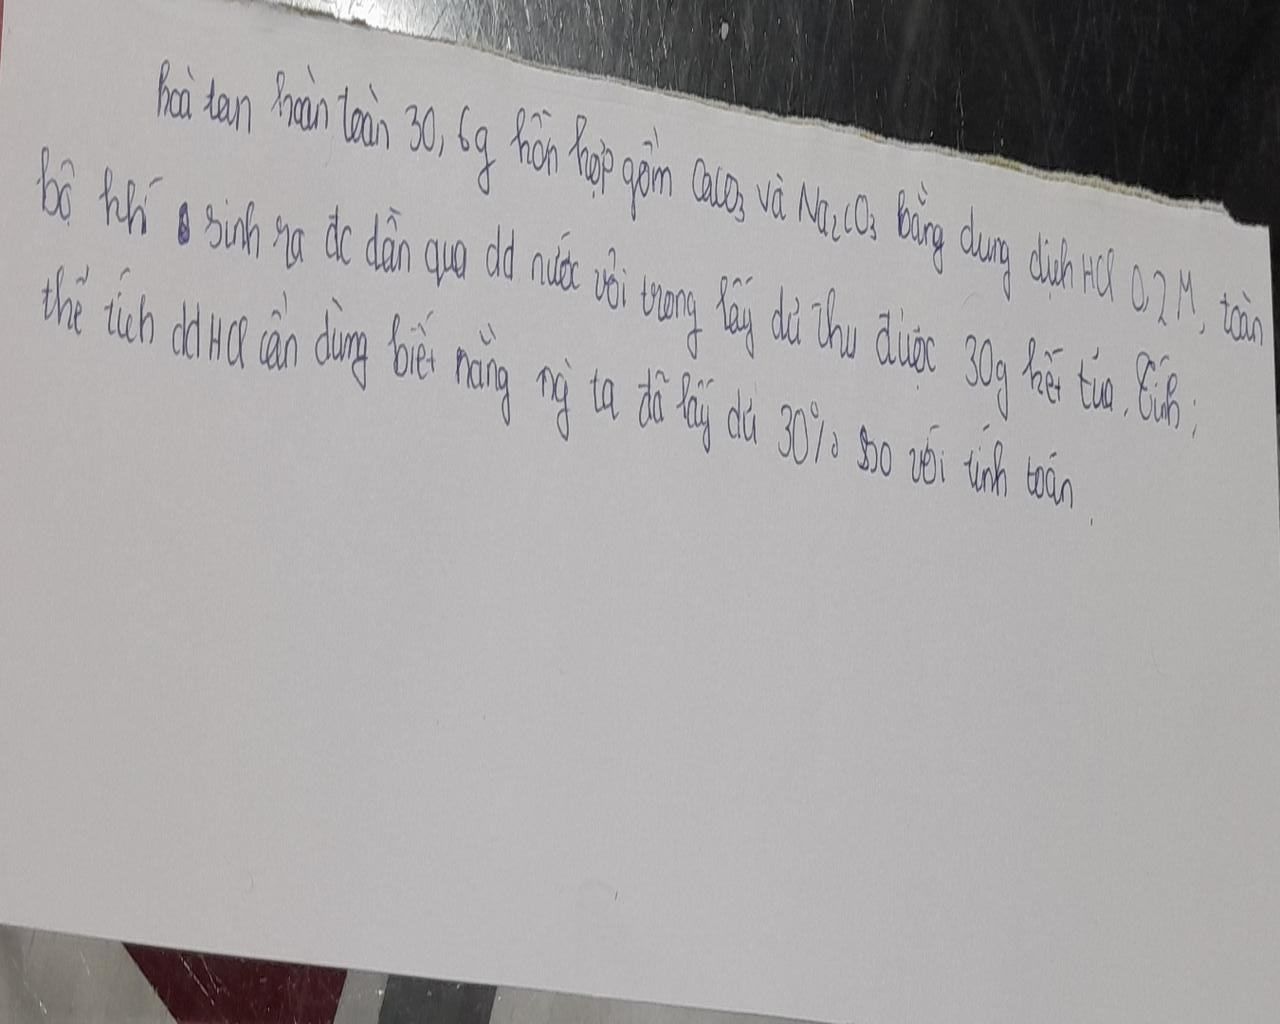 hoà tan hoàn toàn 30,6g hỗn hợp gồm CaCO₃ và Na₂CO₃ bằng dung dịch HCl 0,2M, toàn
bộ khí sinh ra đc dẫn qua dd nước vôi trong lấy dư thu được 30g kết tủa. Tính:
thể tích dd HCl cần dùng biết rằng ng` ta đã lấy dư 30% so với tính toán.